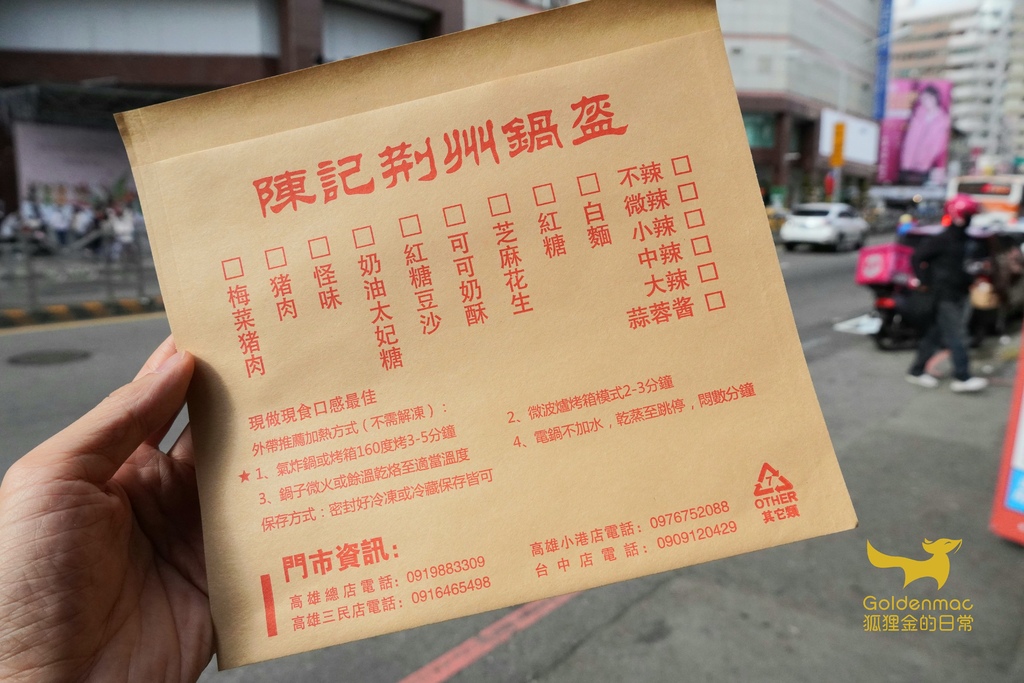 陳記荆州鍋盔
□梅菜猪肉
□猪肉
□怪味
□奶油太妃糖
□紅糖豆沙
□可可奶酥
□芝麻花生
□紅糖
□白麵
不辣□
微辣□
小辣□
中辣□
大辣□
蒜蓉醬□
現做現食口感最佳
外帶推薦加熱方式（不需解凍）：
★1、氣炸鍋或烤箱160度烤3-5分鐘
2、微波爐烤箱模式2-3分鐘
3、鍋子微火或餘溫乾烙至適當溫度
4、電鍋不加水，乾蒸至跳停，悶數分鐘
保存方式：密封好冷凍或冷藏保存皆可
7
OTHER
其它類
門市資訊：
高雄總店電話：0919883309
高雄三民店電話：0916465498
高雄小港店電話：0976752088
台中店電話：0909120429
Goldenmac
狐狸金的日常